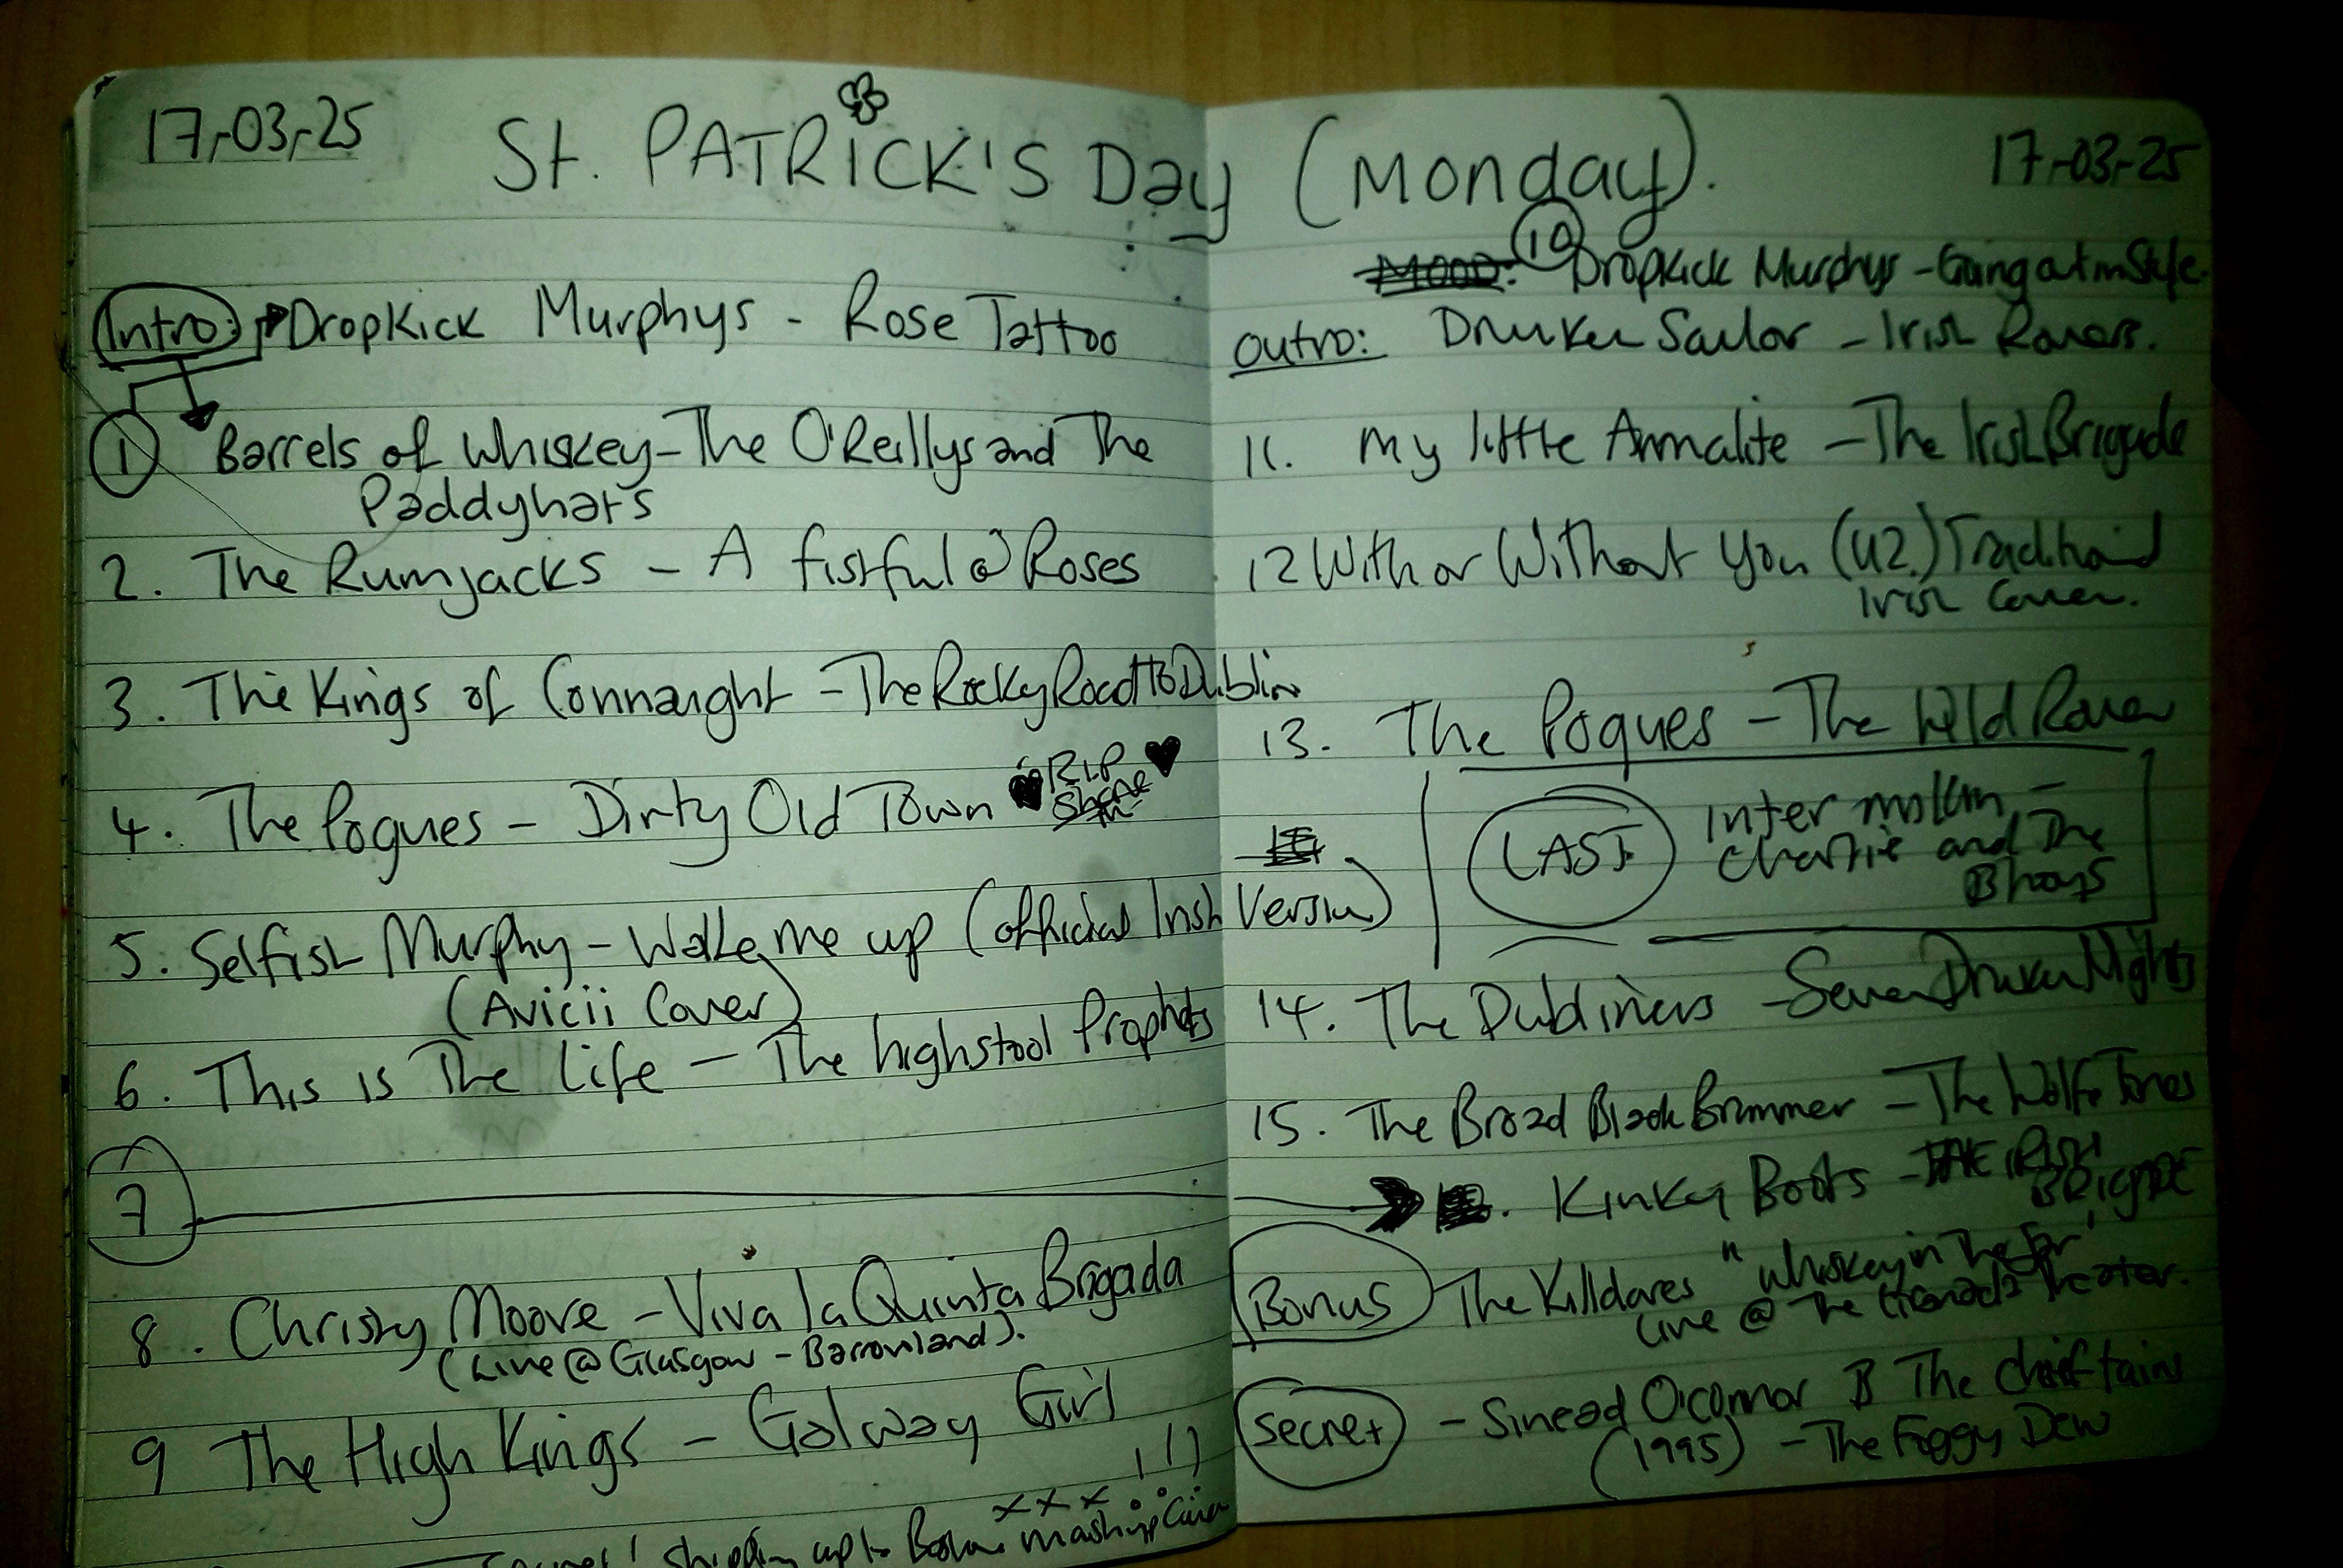 17-03-25
St. PATRICK'S Day (Monday).
17-03-25
Intro: Dropkick Murphys - Rose Tattoo
1 Barrels of Whiskey - The O'Reillys and The
Paddyhats
2. The Rumjacks - A fistful o' Roses
3. The Kings of Connaught - The Rocky Road to Dublin
4. The Pogues - Dirty Old Town RIP
Shane
5. Selfish Murphy - Wake me up (official Irish Version)
(Avicii Cover)
6. This is The Life - The highstool Prophets
7
8. Christy Moore - Viva la Quinta Brigada
(Live @ Glasgow - Barrowland).
9 The High Kings - Galway Girl
x x x !!!
shipping up to Boston mashup Cover
MOOD: 10 Dropkick Murphys - Going out in Style.
Outro: Drunken Sailor - Irish Rovers.
11. My little Armalite - The Irish Brigade
12 With or Without You (U2.) Traditional
Irish Cover.
13. The Pogues - The Wild Rover
LAST
Charlie and The
Bhoys
14. The Dubliners - Seven Drunken Nights
15. The Broad Black Brimmer - The Wolfe Tones
Kinky Boots - THE IRISH
BRIGADE
Bonus The Killdares "Whiskey in The Jar"
Live @ The Granada Theater.
Secret - Sinead O'Connor & The Chieftains
(1995) - The Foggy Dew